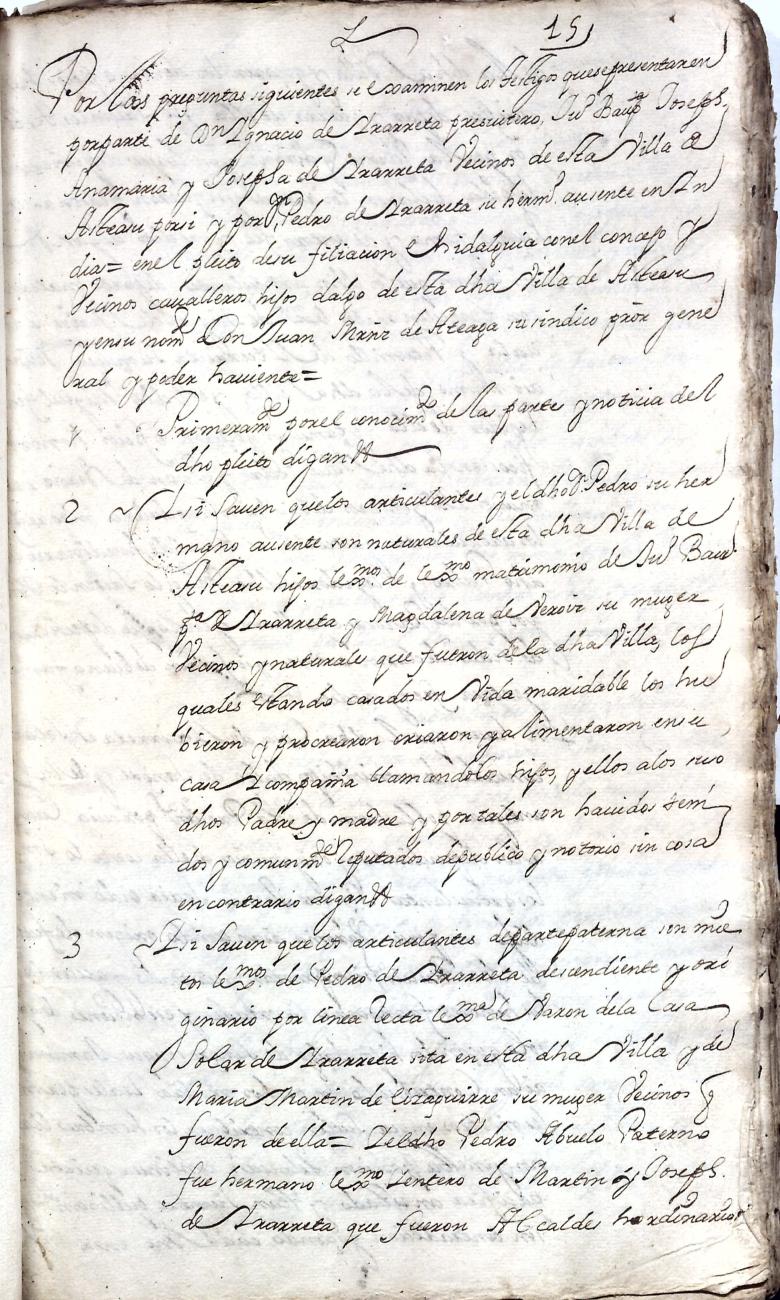 15
Por las preguntas siguientes se examinen los testigos que se presentaren
por parte de Dn Ignacio de Irarreta presvitero, Juo Baupta Joseph,
Anamaria y Josepha de Irarreta Vecinos de esta Villa de
Asteasu por si y por Dn Pedro de Irarreta su hermo ausente en In
dias= en el pleito de su filiacion e hidalguia con el concejo y
Vecinos cavalleros hijos dalgo de esta dha Villa de Asteasu
y en su nome a Don Juan Mrnz de Ateaga su sindico pror gene
ral y poder haviente=
1 Primeramte por el conocimto de las partes y noticia del
dho pleito digan
2 Y si Saven que los articulantes y el dho Dn Pedro su her
mano ausente son naturales de esta dha Villa de
Asteasu hijos lexmos de lexmo matrimonio de Juo Baup
ta de Irarreta y Magdalena de Veroiz su muger
Vecinos y naturales que fueron de la dha Villa, los
quales estando casados en Vida maridable los hu
bieron y procrearon criaron y alimentaron en su
casa y compañia llamandolos hijos, y ellos a los suso
dhos Padre y madre y por tales son havidos teni
dos y comunmte Reputados de publico y notorio sin cosa
en contrario digan
3 Y si Saven que los articulantes de parte paterna son nie
tos lexmos de Pedro de Irarreta descendiente y ori
ginario por linea recta lexma de Varon de la Casa
Solar de Irarreta sita en esta dha Villa y de
Maria Martin de Eizaguirre su muger Vecinos q
fueron de ella= Y el dho Pedro Abuelo Paterno
fue hermano lexmo y entero de Martin y Joseph
de Irarreta que fueron Alcaldes hordinarios